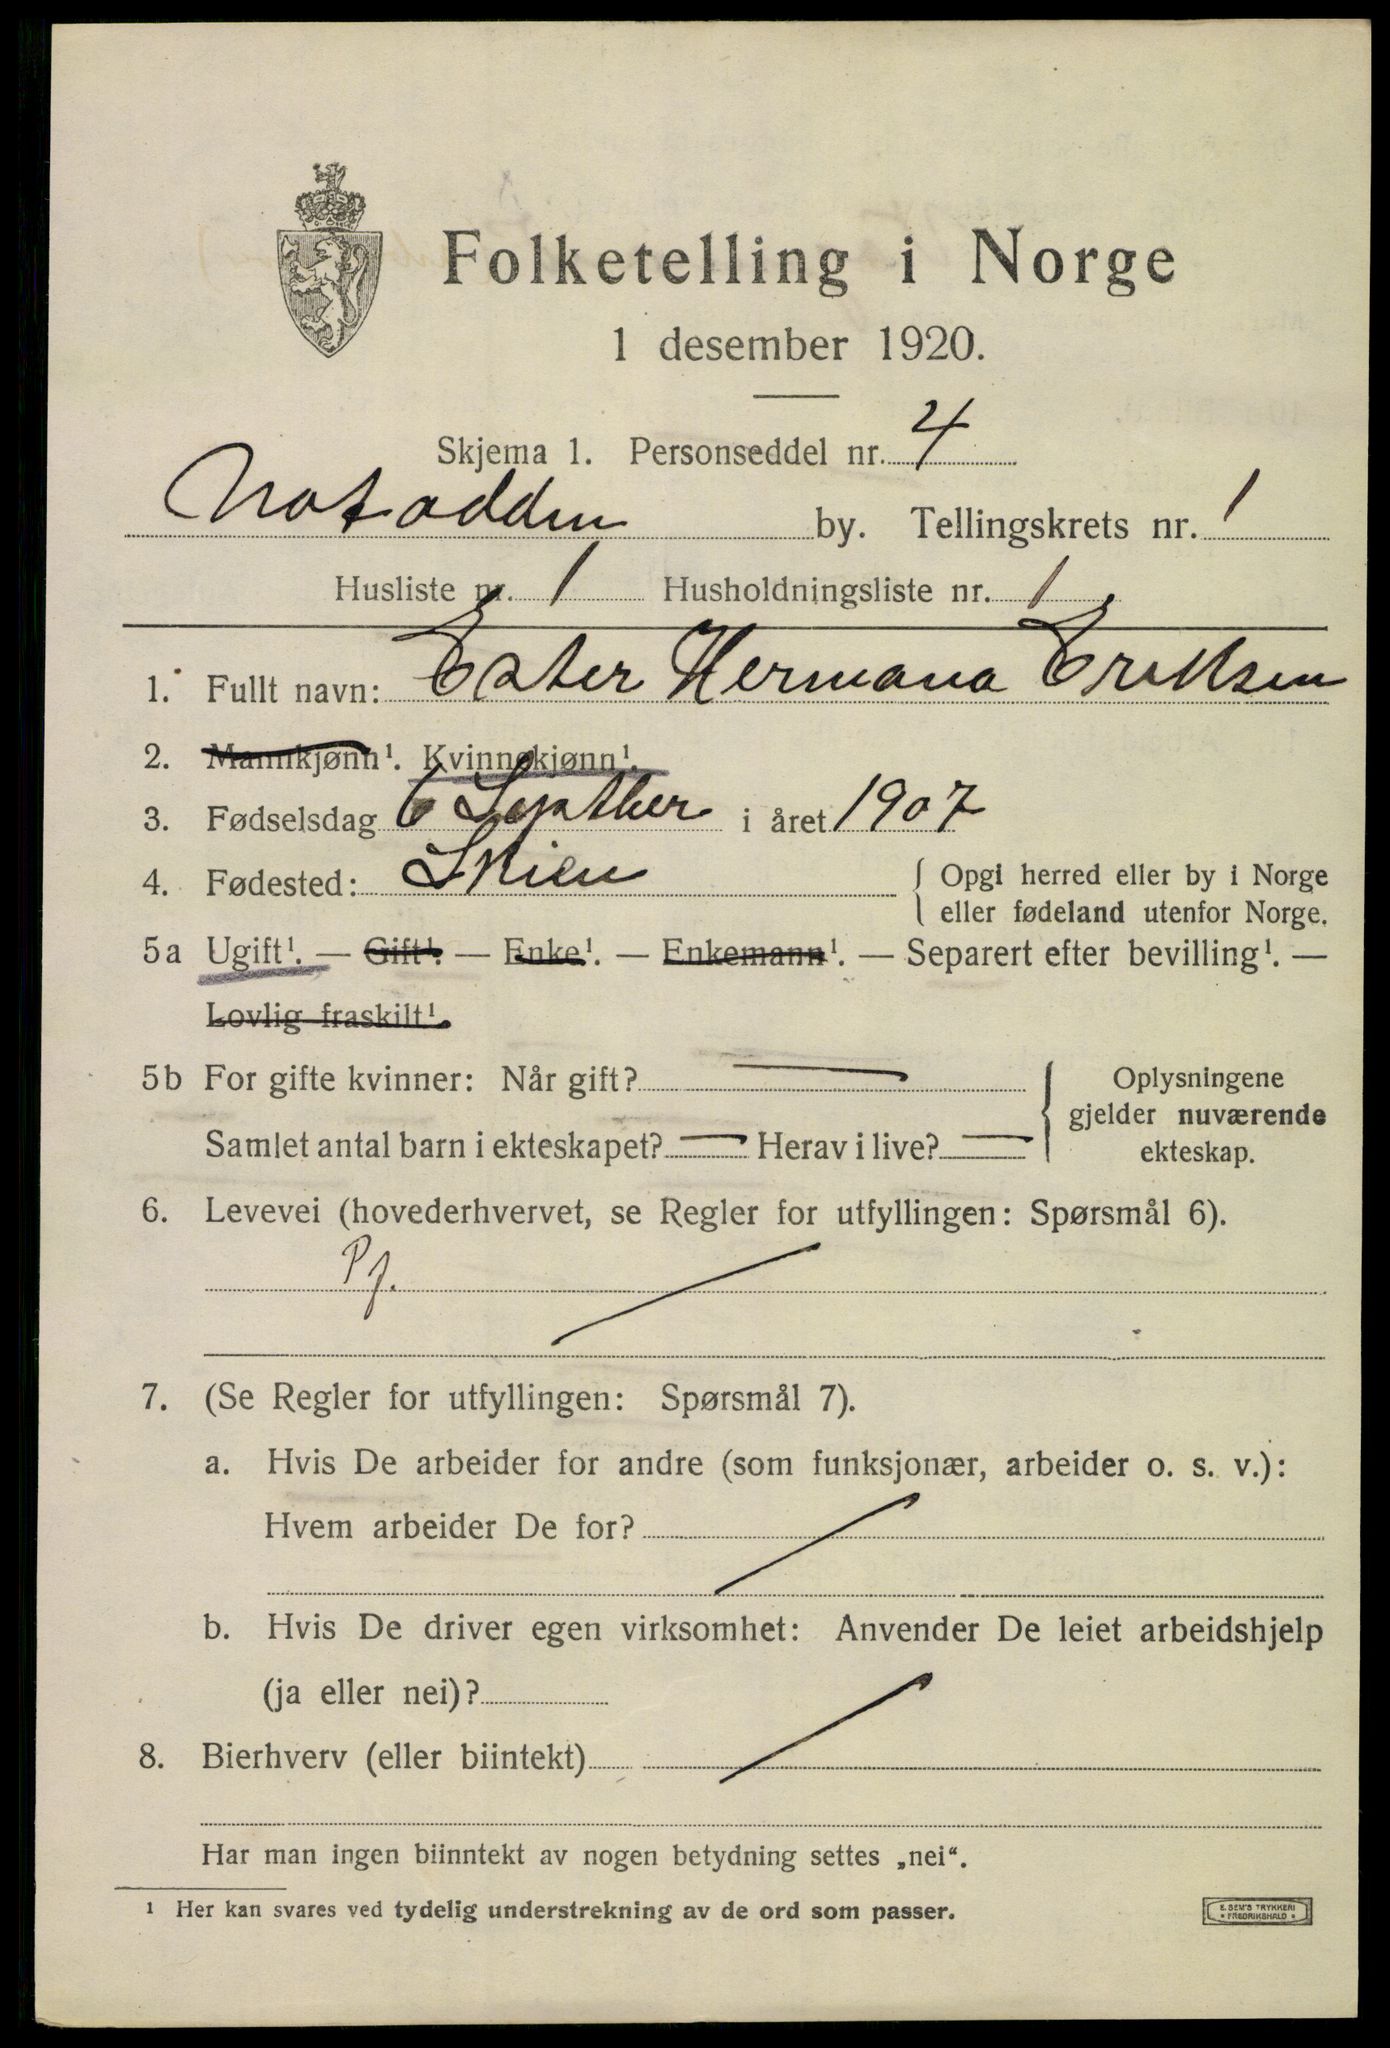 Folketelling i Norge
1 desember 1920.
Skjema 1. Personseddel nr. 4
Notodden by. Tellingskrets nr. 1
Husliste nr. 1 Husholdningsliste nr. 1
1. Fullt navn: Ester Hermana Eriksen
2. Mannkjønn¹. Kvinnekjønn¹.
3. Fødselsdag 6 Septber i året 1907
4. Fødested: Skien { Opgi herred eller by i Norge
eller fødeland utenfor Norge.
5a Ugift¹. — Gift¹. — Enke¹. — Enkemann¹. — Separert efter bevilling¹. —
Lovlig fraskilt¹.
5b For gifte kvinner: Når gift? — } Oplysningene
gjelder nuværende
Samlet antal barn i ekteskapet? — Herav i live? —
ekteskap.
6. Levevei (hovederhvervet, se Regler for utfyllingen: Spørsmål 6).
Pf.
7. (Se Regler for utfyllingen: Spørsmål 7).
a. Hvis De arbeider for andre (som funksjonær, arbeider o. s. v.):
Hvem arbeider De for?
b. Hvis De driver egen virksomhet: Anvender De leiet arbeidshjelp
(ja eller nei)?
8. Bierhverv (eller biintekt)
Har man ingen biinntekt av nogen betydning settes „nei“.
¹ Her kan svares ved tydelig understrekning av de ord som passer.
E. SEM'S TRYKKERI
FREDRIKSHALD